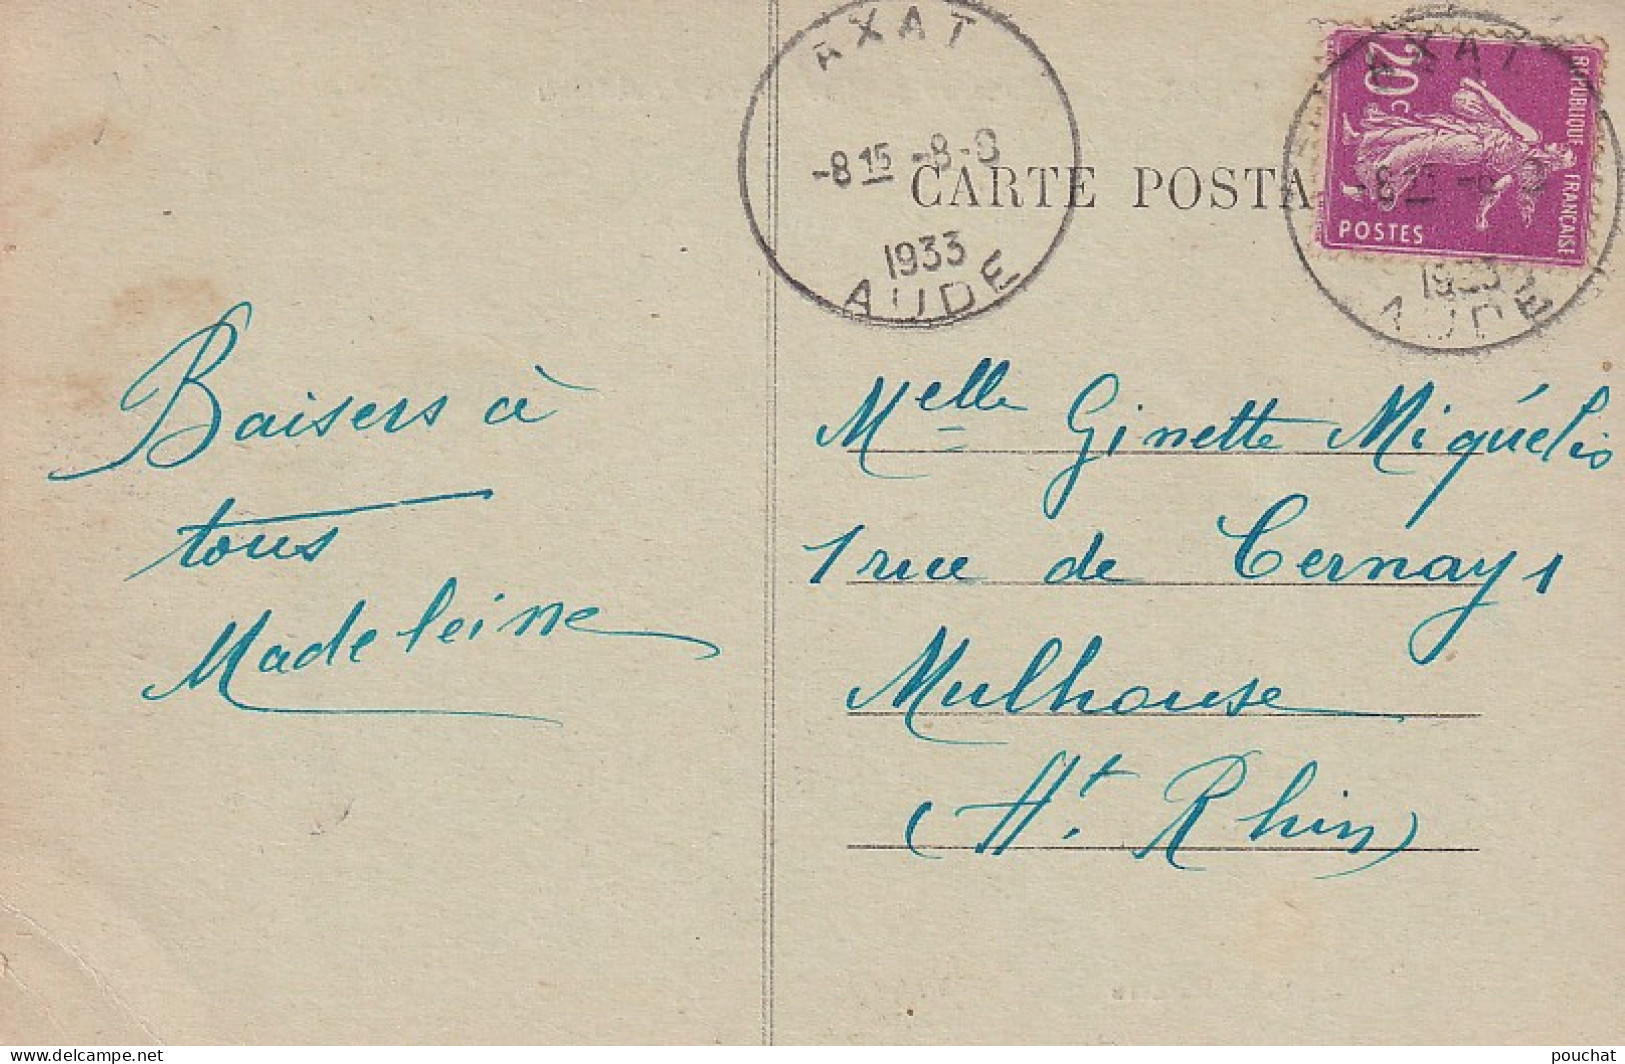 AXAT
-8 15 -8-8
1933
AUDE
20c
REPUBLIQUE FRANÇAISE
POSTES
AXAT
1933
AUDE
CARTE POSTA
Baisers à
tous
Madeleine
Melle Ginette Miquélis
1 rue de Cernay 1
Mulhouse
(Ht. Rhin)
www.delcampe.net
pouchat